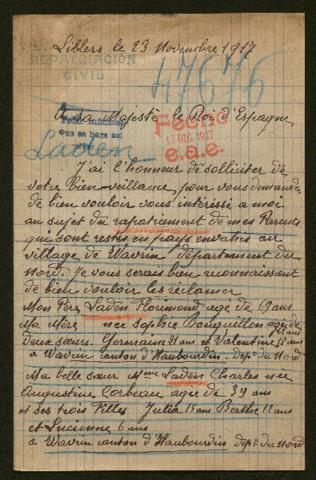 Liblers le 23 Novembre 1917
REPATRIACIÓN
CIVIL
47676
A sa Majesté le Roi d'Espagne
Fecho
13 DIC. 1917
e.a.e.
Laden
J'ai l'honneur de solliciter de
votre Bien-veillance, pour vous demander
de bien vouloir vous intéressé a moi
au sujet du rapatriement de mes Parents
qui sont restés en pays envahis au
village de Wavrin département du
Nord. Je vous serais bien reconnaissant
de bien vouloir les réclamer
Mon Père Laden Florimond agé de ans
Ma Mère nee Sophie Bouquillon agée de ans
Deux sœurs. Germaine 21 ans et Valentine 58 ans
a Wavrin canton d'Haubourdin Dept du Nord
Ma belle sœur Mme Laden Charles née
Augustine Corbeau agée de 39 ans
et ses trois filles Julia 15 ans Berthe 11 ans
et Lucienne 6 ans
a Wavrin canton d'Haubourdin Dept du Nord